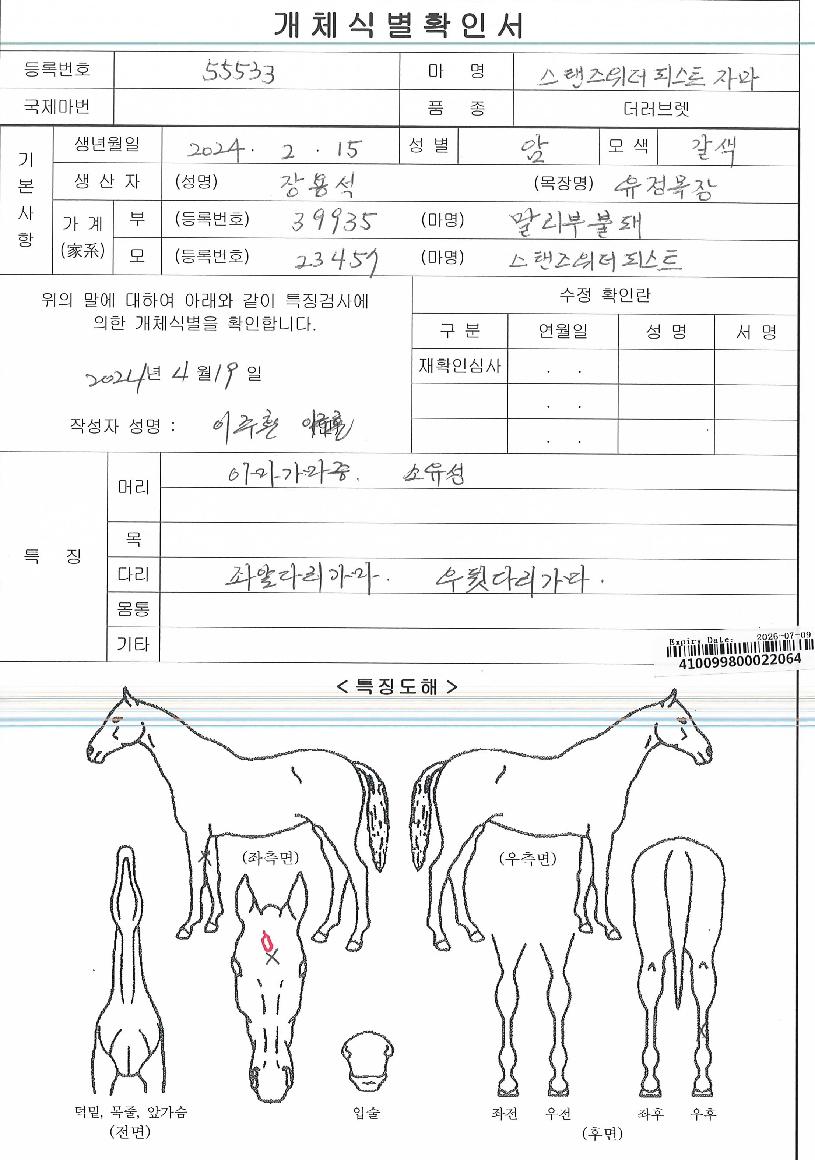 개체식별확인서
등록번호 55533 마 명 스탠즈위더피스트 자마
국제마번 품 종 더러브렛
기본사항
생년월일 2024. 2. 15 성 별 암 모 색 갈색
생 산 자 (성명) 장용석 (목장명) 유정목장
가 계 (家系)
부 (등록번호) 39935 (마명) 말리부블래
모 (등록번호) 23457 (마명) 스탠즈위더피스트
위의 말에 대하여 아래와 같이 특징검사에
의한 개체식별을 확인합니다.
2024년 4월 19일
작성자 성명 : 이주환
수정 확인란
구 분 연월일 성 명 서 명
재확인심사 . .
. .
. .
특 징
머리 이마가마중. 소유성
목
다리 좌앞다리가마. 우뒷다리가마.
몸통
기타
Expiry Date: 2026-07-09
410099800022064
<특징도해>
(좌측면) (우측면)
턱밑, 목줄, 앞가슴 입술 좌전 우전 좌후 우후
(전면) (후면)